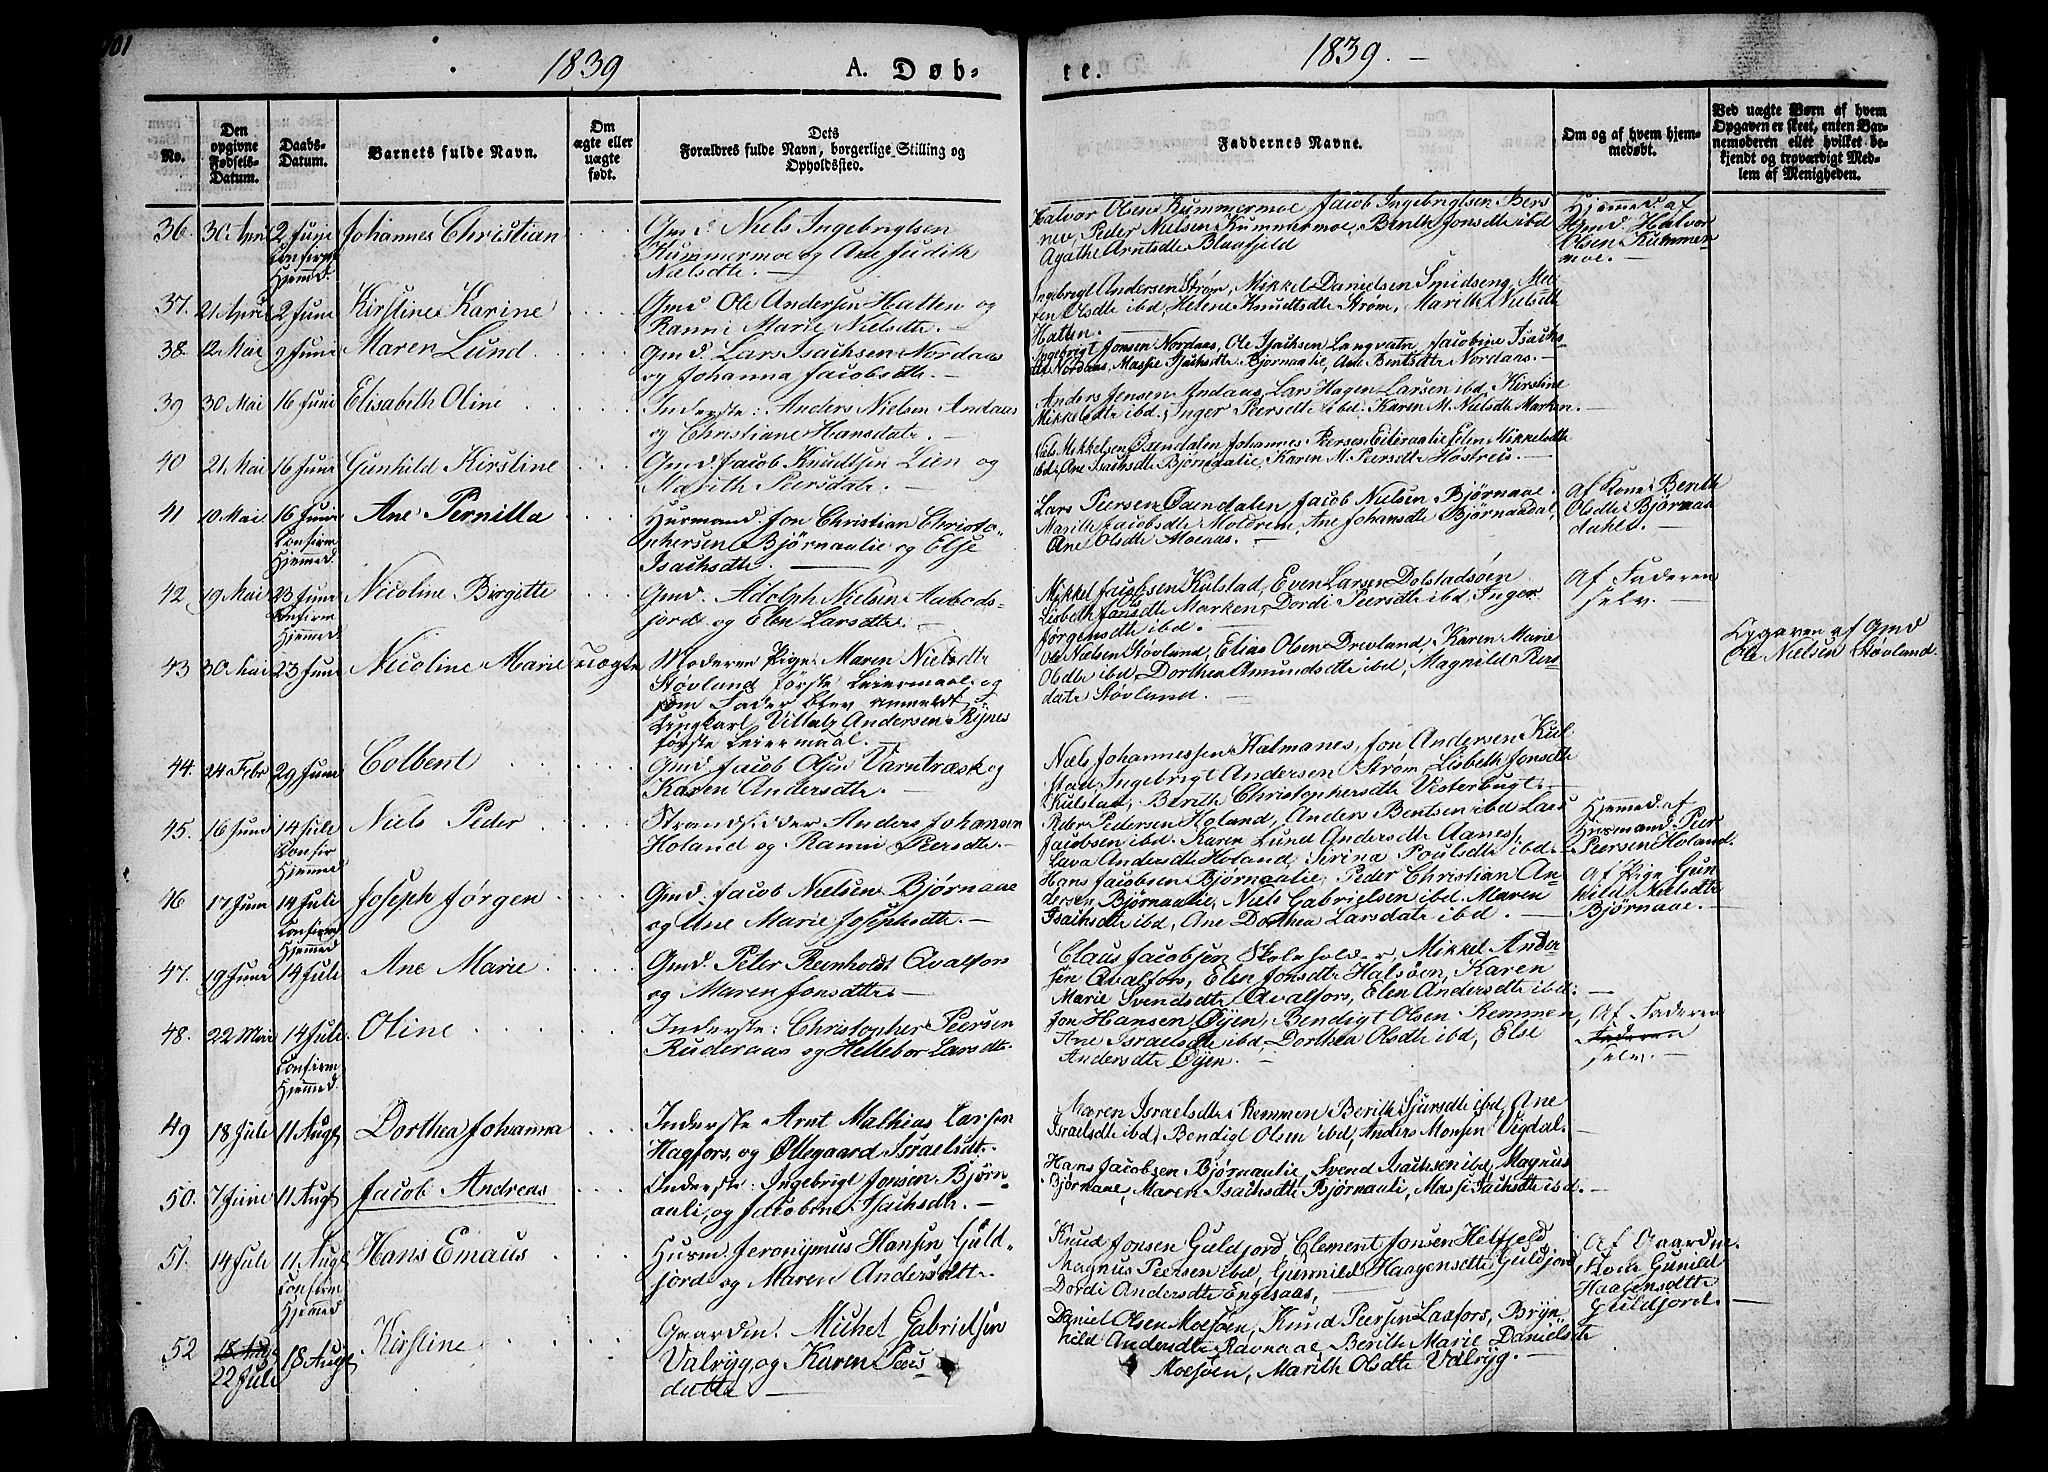 101
1839
A. Døb-
te.
1839. –
No.
Den opgivne Fødsels-Datum.
Daabs-Datum.
Barnets fulde Navn.
Om ægte eller uægte født.
Dets Forældres fulde Navn, borgerlige Stilling og Opholdssted.
Faddernes Navne.
Om og af hvem hjemmedøbt.
Ved uægte Børn af hvem Opgaven er skeet, enten Barnemoderen eller hvilket bekjendt og troværdigt Medlem af Menigheden.
36. 30 Apr 2 Juni Johannes Christian
Confirm Hjemmed.
Gmd. Niels Ingebrigtsen
Kummermoe og Ane Judith
Nielsdtr. –
Halvor Olsen Kummermoe, Jacob Ingebrigtsen Ber
nev, Peder Nielsen Kummermoe, Berith Jonsdt ibd
Agathe Arntsdtr Blaafjeld
Hjemmed. af
Gmd. Halvor
Olsen Kummer
moe. –
37. 21 April 2 Juni Kirstine Karine
Gmd Ole Andersen Hatten og
Ranni Marie Nielsdtr. –
Ingebrigt Andersen Strøm, Mikkel Danielsen Smidseng, Ma
ren Olsdtr ibd, Helene Knudtsdtr Strøm, Marith Nielsdtr
Hatten.
38. 12 Mai 9 Juni Maren Lund
Gmd. Lars Isachsen Nordaas
og Johanna Jacobsdtr. –
Ingebrigt Jonsen Nordaas, Ole Isachsen Langvatn, Jacobine Isachs
dtr Nordaas, Massje Isachsdtr Bjørnaalie, Ane Bentsdtr Nordaas. –
39 30 Mai 16 Juni Elisabeth Oline
Inderste: Anders Nielsen Andaas
og Christiane Hansdatr. –
Anders Jensen Andaas, Lars Hagen Larsen ibd, Kirstine
Mikkelsdtr ibd, Inger Peersdtr ibd. Karen M. Nielsdtr Marken. –
40 21 Mai 16 Juni Gunhild Kirstine
Gmd. Jacob Knudtsen Lien og
Marith Peersdatr. –
Niels Mikkelsen Øxendalen Johannes Peersen Eiteraalie Elen Mikkelsdtr
ibd, Ane Isachsdtr Bjørndalie, Karen M. Peersdtr Høstreis. –
41 10 Mai 16 Juni Ane Pernilla
Confirm Hjemmed
Huusmand Jon Christian Christo
phersen Bjørnaalie og Else
Isachsdtr. –
Lars Peersen Øxendalen Jacob Nielsen Bjørnaae
Marith Jacobsdtr Moldrem, Ane Johansdtr Bjørnaadal,
Ane Olsdtr Moeaas. –
Af Kone Berith
Olsdtr Bjørnaa
dahl. –
42 19 Mai 23 Juni Nicoline Birgitte
Confirm Hjemmed.
Gmd. Adolph Nielsen Aabods-
jord og Elen Larsdtr. –
Mikkel Jacobsen Kulstad, Even Larsen Dolstadsøen
Lisbeth Jonsdtr Marken, Dordi Peersdtr ibd, Inger
Jørgensdtr ibd. –
Af Faderen
selv. –
43 30 Mai 23 Juni Nicoline Marie uægte
Moderen Pige: Maren Nielsdtr
Støvland første Leiermaal og
som Fader blev anmeldt
Ungkarl Villatz Andersen Rynes
første Leiermaal. –
Ole Nielsen Støvland, Elias Olsen Drevland, Karen Marie
Olsdtr ibd, Dorthea Amundsdtr ibd, Magnild Peers
datr Støvland. –
Opgaven af Gmd
Ole Nielsen Støvland.
44. 24 Febr 29 Juni Colbent
Gmd. Jacob Olsen Varntræsk og
Karen Andersdtr. –
Niels Johannessen Halmanes, Jon Andersen Kul
stad Ingebrigt Andersen Strøm Lisbeth Jonsdtr
Kulstad, Berith Christophersdtr Vesterbugt. –
45. 16 Juni 14 Juli Niels Peder
Confir Hjemmed
Strandsidder Anders Johansen
Holand og Ranni Peersdtr. –
Peder Pedersen Holand, Anders Bentsen ibd Lars
Jacobsen ibd. Karen Lund Andersdtr Aanes,
Lava Andersdtr Holand, Sirina Poulsdtr ibd.
Hjemmed. af
Huusmand: Peer
Peersen Holand.
46 17 Juni 14 Juli Joseph Jørgen
Confirm Hjemmed
Gmd. Jacob Nielsen Bjørnaae
og Ane Marie Josephsdtr. –
Hans Jacobsen Bjørnaalie, Peder Christian An
dersen Bjørnaalie, Niels Gabrielsen ibd. Maren
Isachsdtr ibd, Ane Dorthea Larsdatr ibd. –
Af Pige Gun
hild Nielsdtr
Bjørnaae. –
47. 19 Juni 14 Juli Ane Marie
Gmd. Peter Reinholdt Avalfors
og Maren Jonsdtr –
Claus Jacobsen Skoleholder, Mikkel Ander
sen Avalfors, Elen Jonsdtr Halsøen, Karen
Marie Svendsdtr Avalfors, Elen Andersdtr ibd. –
48. 22 Mai 14 Juli Oline
Confirm Hjemmed.
Inderste: Christopher Peersen
Ruderaas og Hellebor Larsdtr.
Jon Hansen Øyen, Bendigt Olsen Remmen,
Ane Israelsdtr ibd, Dorthea Olsdtr ibd, Else
Andersdtr Øyen. –
Af Faderen
Faderen
selv. –
49 18 Juli 11 Augt Dorthea Johanna
Inderste Arnt Mathias Larsen
Hagfors, og Ollegaard Israelsdtr.
Maren Israelsdtr Remmen Berith Sjursdtr ibd, Ane
Israelsdtr ibd, Bendigt Olsen ibd, Anders Monsen Vegdal. –
50. 7 Juni 11 Augt Jacob Andreas
Inderste: Ingebrigt Jonsen Bjørn-
aali, og Jacobine Isachsdtr. –
Hans Jacobsen Bjørnaalie, Svend Isachsen ibd, Magnus
Bjørnaae, Maren Isachsdtr Bjørnaali, Massi Isachsdtr ibd. –
51. 14 Juli 11 Augt Hans Emaus
Confirm Hjemmed
Huusm. Jeronymus Hansen Guld-
jord og Maren Andersdtr. –
Knud Jonsen Guldjord, Clement Jonsen Hetfjeld
Magnus Peersen ibd, Gunnild Haagensdtr Guldjord,
Dordi Andersdtr Engesaas,
Af Gaardm.
Kone Gunild
Haagensdtr
Guldjord. –
52 18 Aug 22 Juli 18 Augt Kirstine
Gaardm. Mikkel Gabrielsen
Valryg, og Karen Lars
datter –
Daniel Olsen Moesøen, Knud Peersen Laxfors, Bryn
hild Andersdtr Ravnaae, Berith Marie Danielsdtr
Moesøen, Marith Olsdtr Valryg. –